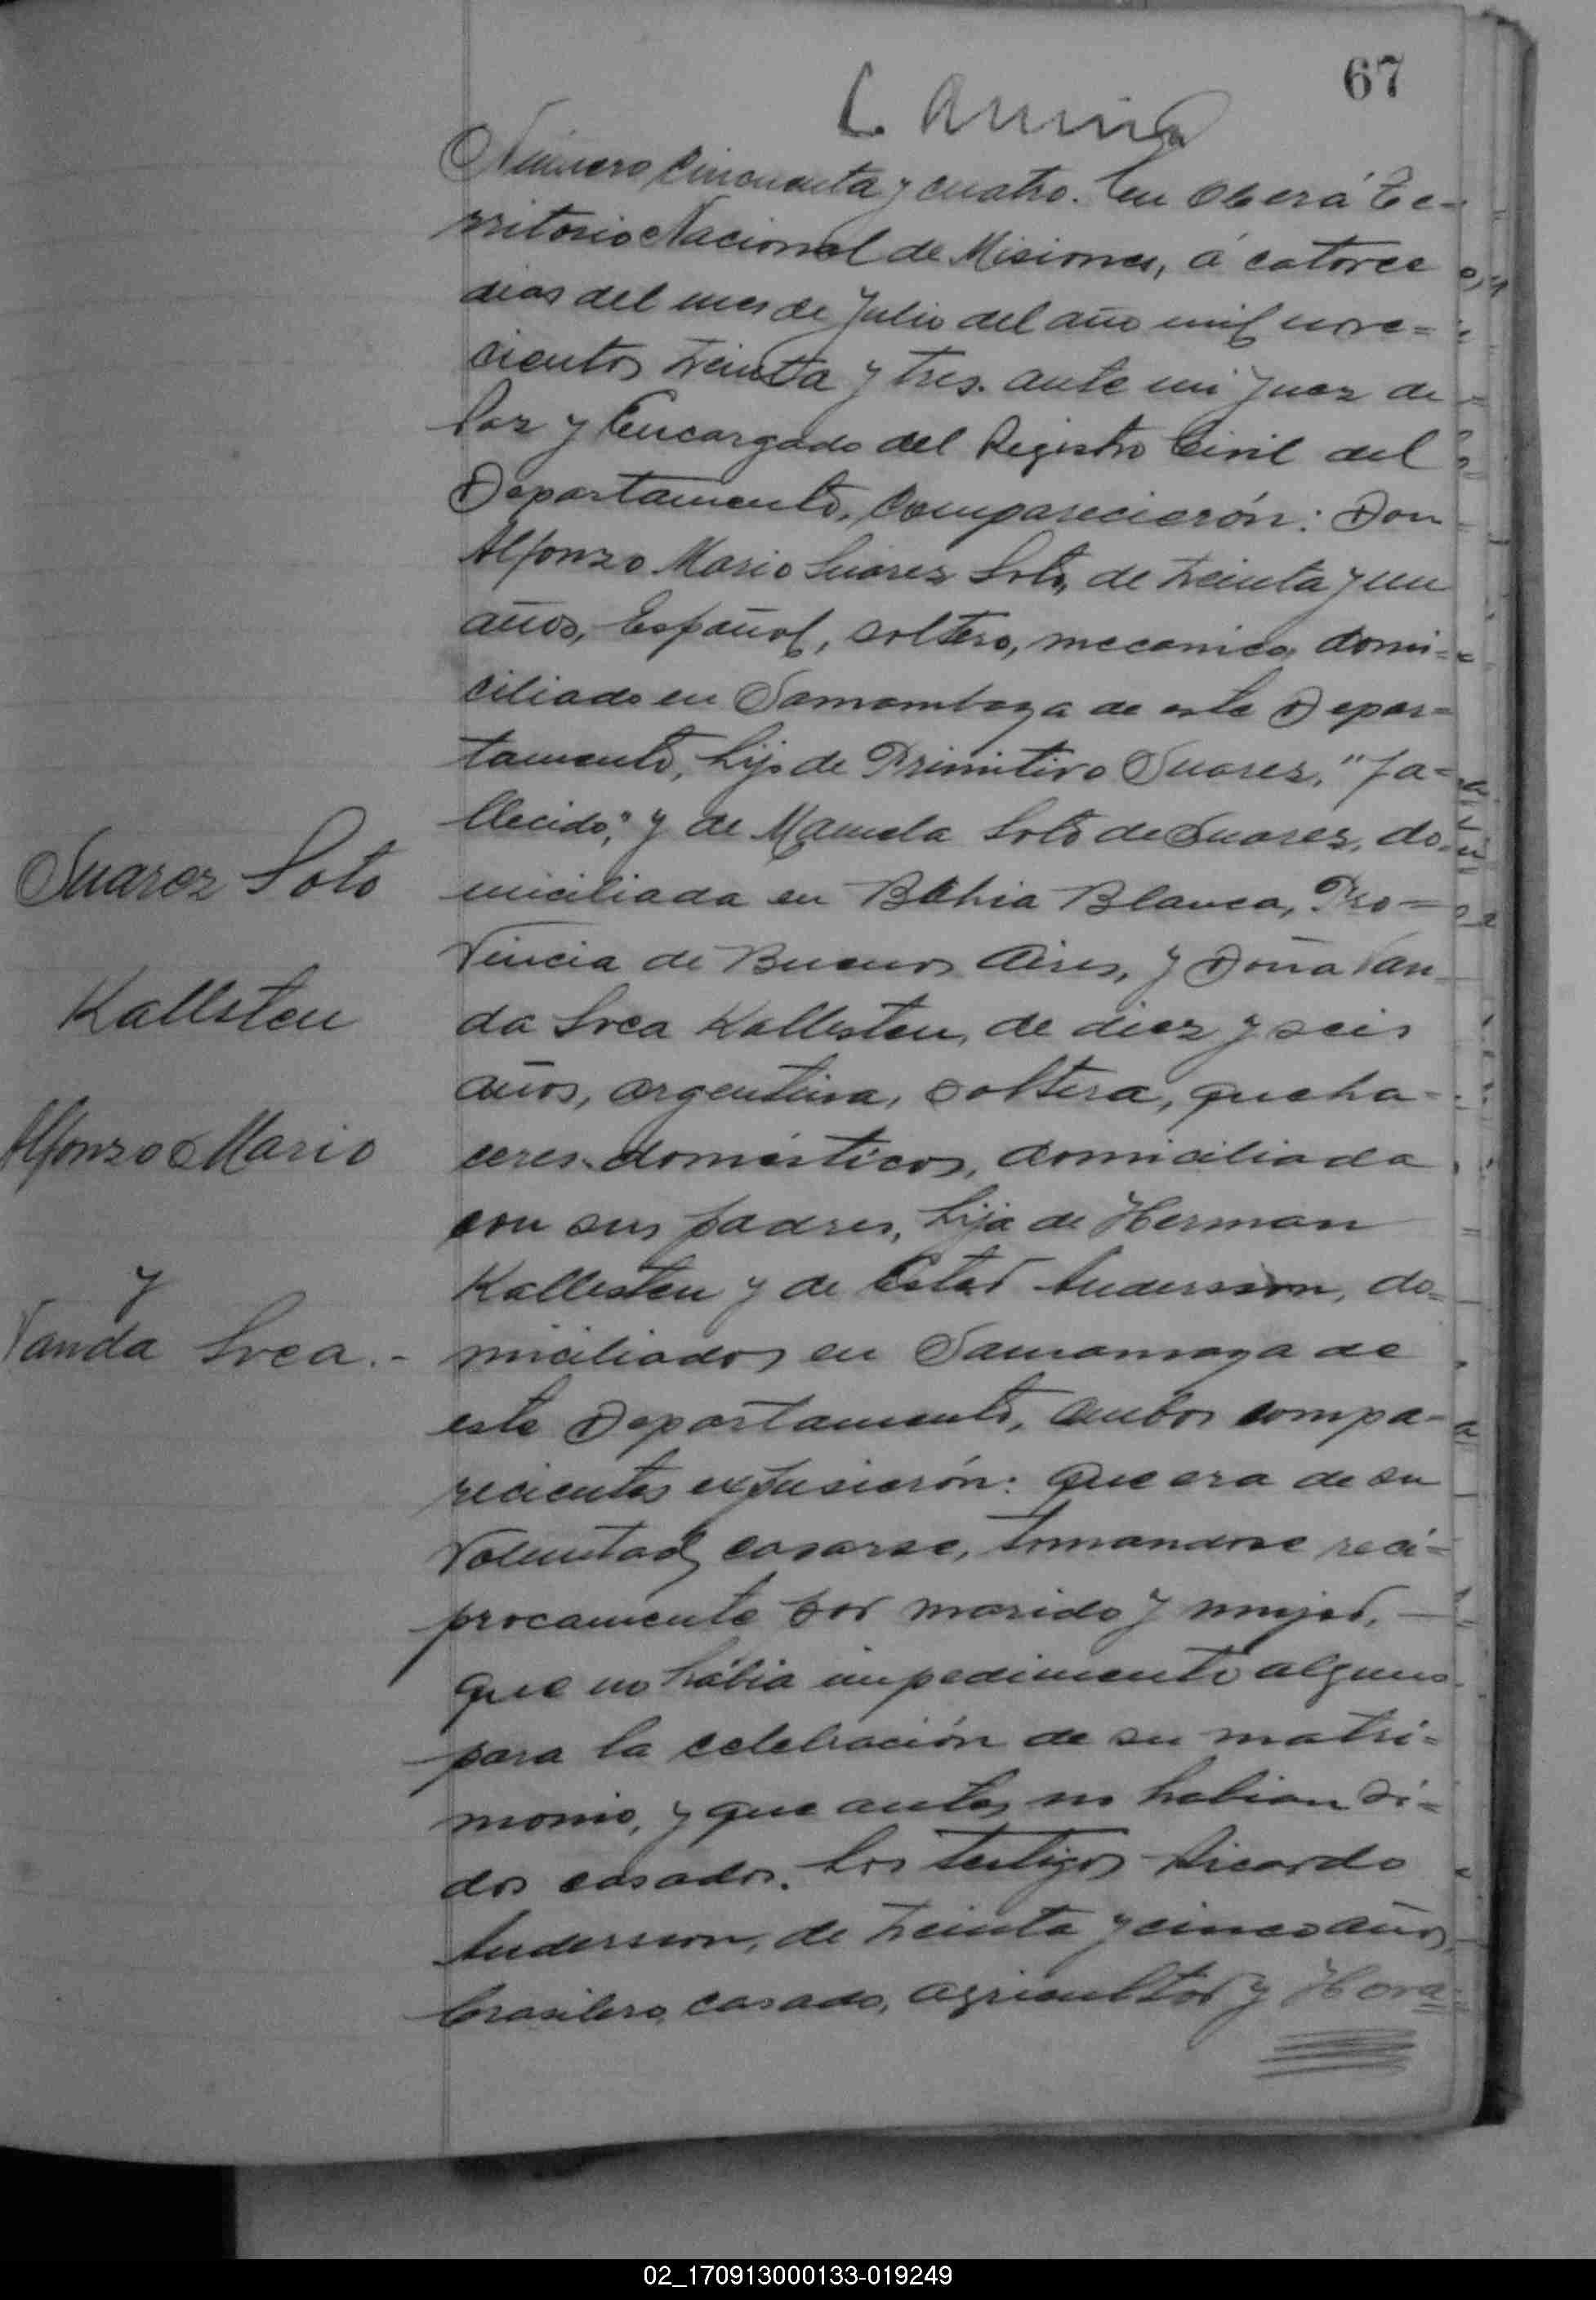 67
Número Cincuenta y cuatro. En Oberá Te-
rritorio Nacional de Misiones, á catorce
dias del mes de Julio del año mil nove=
cientos treinta y tres. ante mi Juez de
Paz y Encargado del Registro Civil del
Departamento, comparecierón: Don
Alfonzo Mario Suarez Soto, de treinta y un
años, Español, soltero, mecanico, domi=
ciliado en Samambaya de este Depar=
tamento, hijo de Primitivo Suarez, "fa=
llecido," y de Manuela Soto de Suarez, do-
miciliada en Bahia Blanca, Pro=
vincia de Buenos Aires, y Doña Van
da Svea Kallsten, de diez y seis
años, argentina, soltera, queha-
ceres domésticos, domiciliada
con sus padres, hija de Herman
Kallesten y de Ester Andersson, do=
miciliados en Samamaya de
este Departamento, ambos compa-
recientes expusierón: Que era de su
voluntad casarse, tomandose reci=
procamente por marido y mujer, —
que no habia impedimento alguno
para la celebración de su matri=
monio, y que antes no habian si=
dos casados. Los testigos Ricardo
Andersson, de treinta y cinco años,
brasilero, casado, agricultor y Hora=
Suarez Soto
Kallsten
Alfonzo Mario
y
Vanda Svea.-
02_170913000133-019249